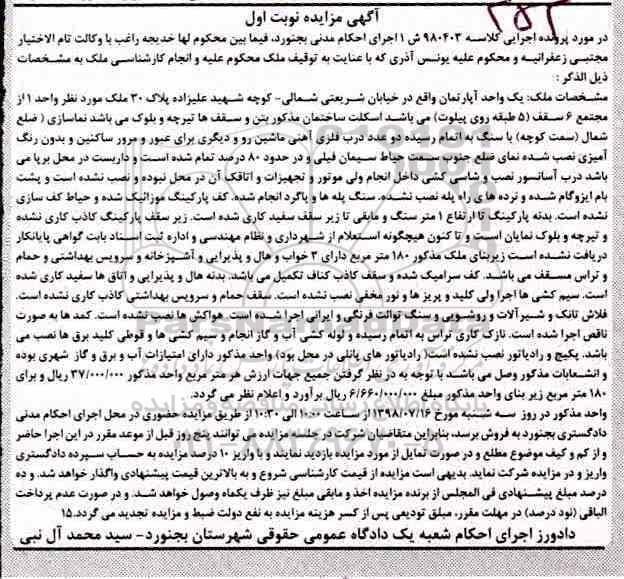 آگهی مزایده نوبت اول
در مورد پرونده اجرایی کلاسه ۹۸۰۴۰۳ ش ۱ اجرای احکام مدنی بجنورد، فیما بین محکوم لها خدیجه راغب با وکالت تام الاختیار
مجتبی زعفرانیه و محکوم علیه یونس آذری که با عنایت به توقیف ملک محکوم علیه و انجام کارشناسی ملک به مشخصات
ذیل الذکر :
مشخصات ملک: یک واحد آپارتمان واقع در خیابان شریعتی شمالی- کوچه شهید علیزاده پلاک ۳۰ ملک مورد نظر واحد ۱ از
مجتمع ۶ سقف (۵ طبقه روی پیلوت) می باشد اسکلت ساختمان مذکور بتن و سقف ها تیرچه و بلوک می باشد نماسازی ( ضلع
شمال (سمت کوچه) با سنگ به اتمام رسیده دو عدد درب فلزی آهنی ماشین رو و دیگری برای عبور و مرور ساکنین و بدون رنگ
آمیزی نصب شده نمای ضلع جنوب سمت حیاط سیمان فیلی و در حدود ۸۰ درصد تمام شده است و داربست در محل برپا می
باشد درب آسانسور نصب و شاسی کشی داخل انجام ولی موتور و تجهیزات و اتاقک آن در محل نبوده و نصب نشده است و پشت
بام ایزوگام شده و نرده های راه پله نصب نشده، سنگ پله ها و پاگرد انجام شده. کف پارکینگ موزائیک شده و حیاط کف سازی
نشده است. بدنه پارکینگ تا ارتفاع ۱ متر سنگ و مابقی تا زیر سقف سفید کاری شده است. زیر سقف پارکینگ کاذب کاری نشده
و تیرچه و بلوک نمایان است و تا کنون هیچگونه استعلام از شهرداری و نظام مهندسی و اداره ثبت اسناد بابت گواهی پایانکار
دریافت نشده است زیربنای ملک مذکور ۱۸۰ متر مربع دارای ۳ خواب و هال و پذیرایی و آشپزخانه و سرویس بهداشتی و حمام
و تراس مسقف می باشد. کف سرامیک شده و سقف کاذب کناف تکمیل می باشد. بدنه هال و پذیرایی و اتاق ها سفید کاری شده
است. سیم کشی ها اجرا ولی کلید و پریز ها و نور مخفی نصب نشده است. سقف حمام و سرویس بهداشتی کاذب کاری نشده است.
فلاش تانک و شیر آلات و روشویی و سنگ توالت فرنگی و ایرانی اجرا شده است هواکش ها نصب نشده است. کمد ها به صورت
ناقص اجرا شده است. نازک کاری تراس به اتمام رسیده و لوله کشی آب و گاز انجام و سیم کشی ها و قوطی کلید برق ها نصب می
باشد. پکیج و رادیاتور نصب نشده است( رادیاتور های پانلی در محل بود) واحد مذکور دارای امتیازات آب و برق و گاز شهری بوده
و انشعابات مذکور وصل می باشد با توجه به در نظر گرفتن جمیع جهات ارزش هر متر مربع واحد مذکور ۳۷/۰۰۰/۰۰۰ ریال و برای
۱۸۰ متر مربع زیر بنای واحد مذکور مبلغ ۶/۶۶۰/۰۰۰/۰۰۰ ریال برآورد و اعلام نظر می گردد.
واحد مذکور در روز سه شنبه مورخ ۱۳۹۸/۰۷/۱۶ از ساعت ۱۰:۰۰ الی ۱۰:۳۰ از طریق مزایده حضوری در محل اجرای احکام مدنی
دادگستری بجنورد به فروش برسد، بنابراین متقاضیان شرکت در جلسه مزایده می توانند پنج روز قبل از موعد مقرر در این اجرا حاضر
و از کم و کیف موضوع مطلع و در صورت تمایل از مورد مزایده بازدید نمایند و با واریز ۱۰ درصد مزایده به حساب سپرده دادگستری
واریز و در مزایده شرکت نماید. بدیهی است مزایده از قیمت کارشناسی شروع و به بالاترین قیمت پیشنهادی واگذار خواهد شد. و ده
درصد مبلغ پیشنهادی فی المجلس از برنده مزایده اخذ و مابقی مبلغ نیز ظرف یکماه وصول خواهد شد. و در صورت عدم پرداخت
الباقی (نود درصد) در مهلت مقرر، مبلق تودیعی پس از کسر هزینه مزایده به نفع دولت ضبط و مزایده تجدید می گردد.۱۵
دادورز اجرای احکام شعبه یک دادگاه عمومی حقوقی شهرستان بجنورد- سید محمد آل نبی